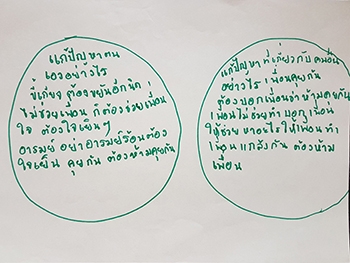 แก้ปัญหาตน
เองอย่างไร
ขี้เกียจ ต้องขยันอีกนิด
ไม่ช่วยเพื่อน ก็ต้องช่วยเพื่อน
ใจ ต้องใจเย็นๆ
อารมย์ อย่าอารมย์ร้อนต้อง
ใจเย็น คุยกัน ต้องห้ามคุยกัน
แก้ปัญหาที่เกี่ยวกับคนอื่น
อย่างไร เพื่อนคุยกัน
ต้องบอกเพื่อนว่าห้ามคุยกัน
เพื่อนไม่ช่วยทำ บอกเพื่อน
ให้ช่วย หาอะไรให้เพื่อนทำ
เพื่อนแกล้งกัน ต้องห้าม
เพื่อน